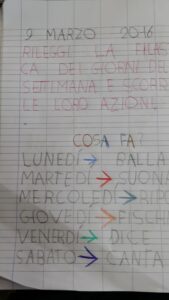 9 MARZO 2016
RILEGGI LA FILAS
CA DEI GIORNI DEL
SETTIMANA E SCOPRI
LE LORO AZIONI.
COSA FA?
LUNEDÍ → BALLA
MARTEDÍ → SUONA
MERCOLEDÍ → RIPO
GIOVEDÍ → FISCHI
VENERDÍ → DICE
SABATO → CANTA